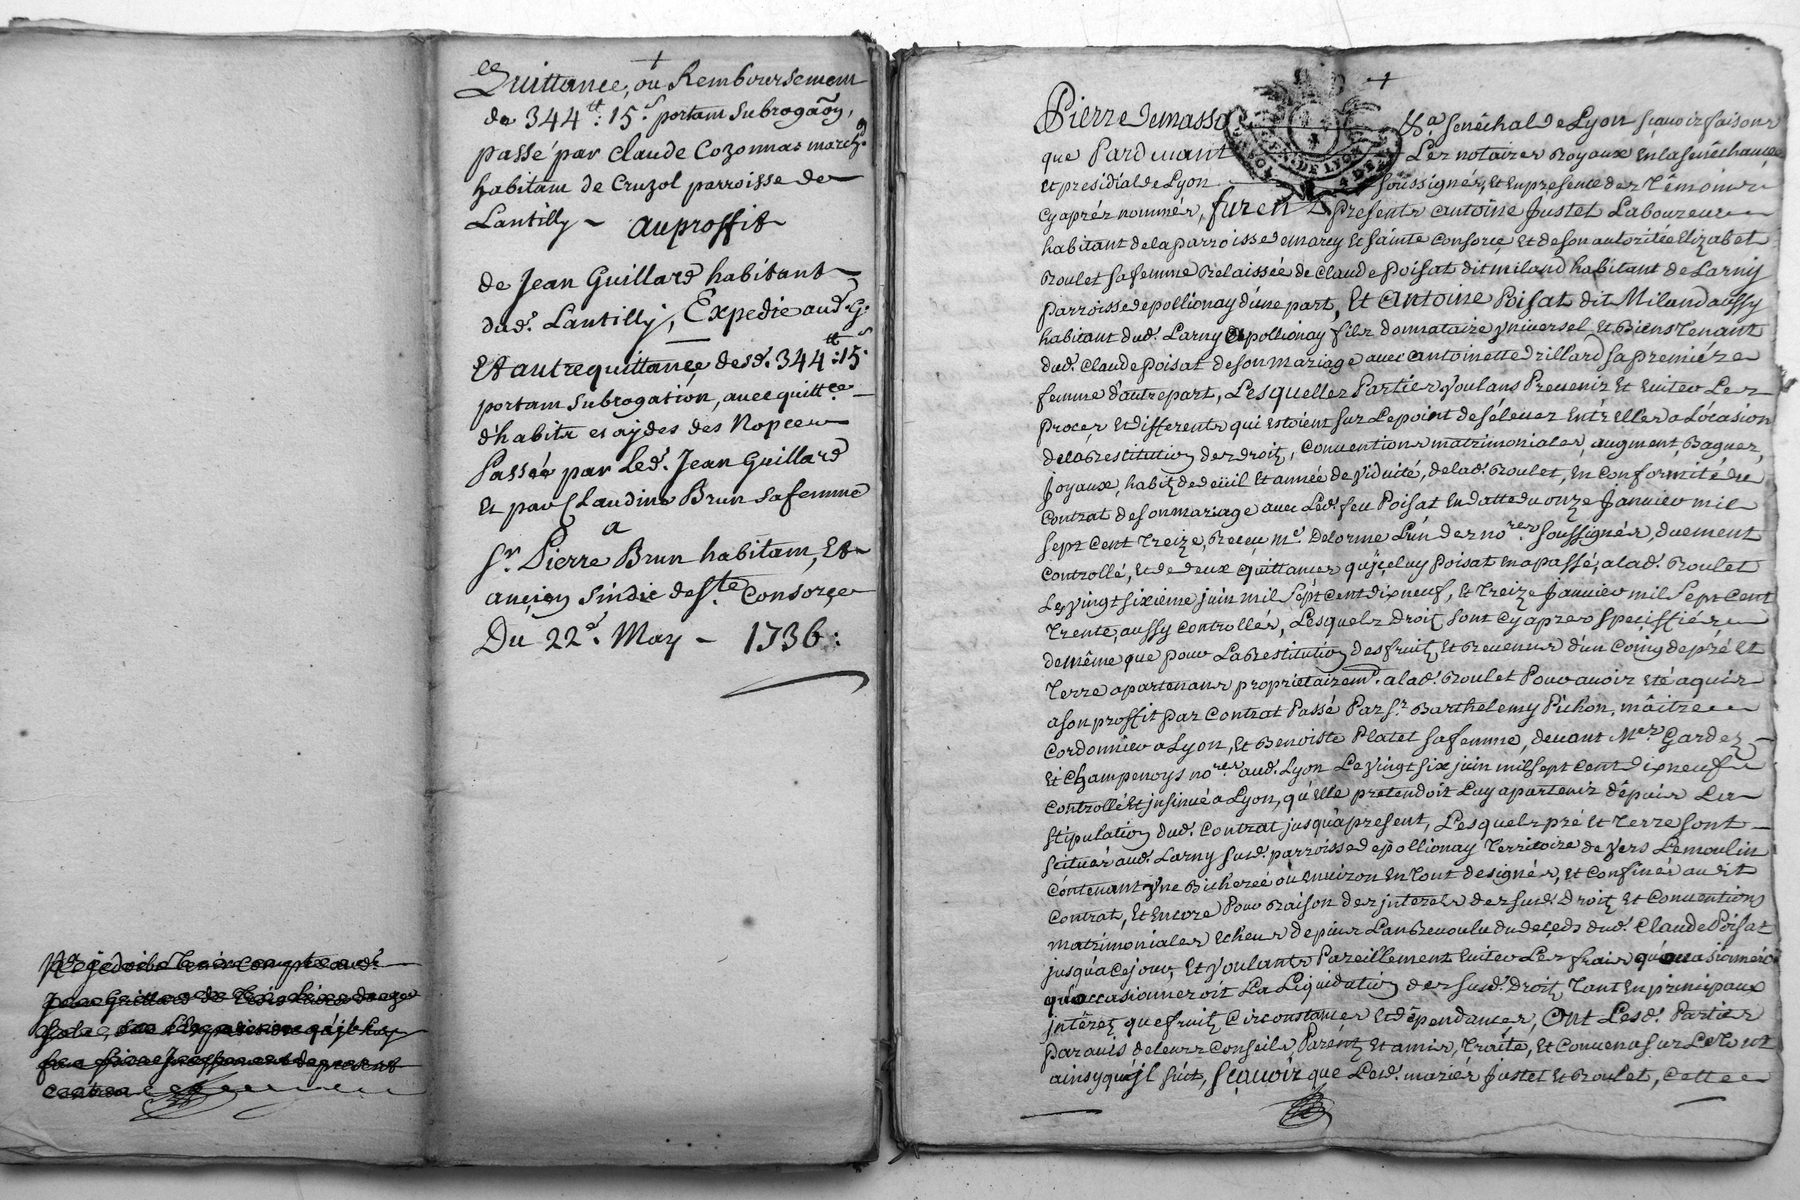 Quittance, ou Remboursement
de 344 tt: 15 s. portam subrogãon,
passé par Claude Cozonnas march.d
habitam de Cruzol parroisse de
Lantilly ~ au proffit
de Jean Guillard habitant
dud. Lantilly, Expedié aud. G.
Et autre quittance desd. 344 tt: 15 s.
portam subrogation, avec quitt.ce
d'habits et aydes des Nopces
Passée par Led. Jean Guillard
Et par Claudine Brun sa femme
a
Sr. Pierre Brun habitam, Et
ancien sindic de Ste. Consorce
Du 22e. May ~ 1736:
Pierre Demasso
Sénéchal de Lyon sçavoir faisons
que Pardevant
Les notaires Royaux en la sénéchaussée
et presidial de Lyon
soussignés, et en presence des Témoins
cy aprés nommés, furent presents antoine Justet Laboureur
habitant de la parroisse de marcy et sainte consorce et de son autoritée Elizabet
Roulet sa femme Relaissée de Claude poisat dit miland habitant de Larny
parroisse de pollionay d'une part, Et Antoine Poisat dit Miland aussy
habitant dud. Larny de pollionay fils donnataire universel et Biens Tenant
dud. Claude poisat de son mariage avec antoinette drillard sa premiére
femme d'autre part, Lesquelles Parties voulans Prevenir Et Eviter Les
procés Et differents qui estoient sur Le point de s'élever Entr'elles a L'ócasion
de la Restitution des droits, conventions matrimoniales, augment, Bagues,
Joyaux, habits de deüil et année de viduité, de lad. Roulet, En conformité du
contrat de son mariage avec Led. feu Poisat En datte du onze Janvier mil
sept cent treize, Reçu me. Delorme L'un des nores. soussignés, duement
controllé, et de deux quittances qu'jceluy Poisat en a passé, a lad. Roulet
Le vingt sixiéme juin mil sept cent dix neuf, et treize Janvier mil sept cent
Trente, aussy controllés, Lesquels droits sont cy aprés speciffiés
de même que pour La Restitution des fruits et Revenus d'un coing de pré et
Terre apartenans proprietairemt. a lad. Roulet Pour avoir eté aquis
a son proffit par contrat Passé Par Sr. Barthelemy Pichon, maître
Cordonnier a Lyon, et Benoiste Platet sa femme, devant Mes. Gardez
et Champenoys nores. aud. Lyon Le vingt six juin mil sept cent dix neuf
controllé et jnsinué a Lyon, qu'elle pretendoit Luy apartenir dépuis La
stipulation dud. contrat jusqu'a present, Lesquels pré et Terre sont
scitués aud. Larny susd. parroisse de pollionay Territoire de vers Le moulin
contenant une Bicherée ou environ En Tout designés, et confinés aud.
contrat, Et encore Pour Raison des jnterets des susd. droits et conventions
matrimoniales echeus depuis L'an Revolu du deçeds dud. Claude Poisat
jusqu'a ce jour, Et voulants Pareillement Eviter Les frais
qu'occasionneroit La Liquidation des susd. droits Tant en principaux
jntérets que fruits circonstances et dépendances, Ont Lesd. Parties
par avis de leurs conseils, Parents et amis, traité, et convenu sur Le tout
ainsy qu'jl suit, sçavoir que Lesd. mariés Justet et Roulet, cette